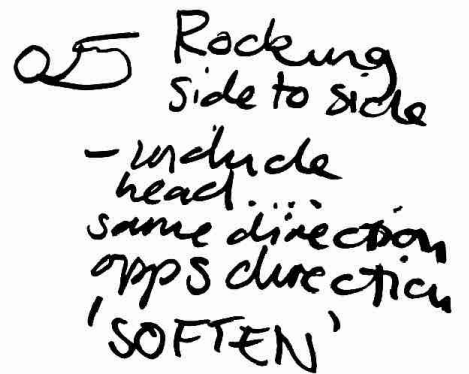 Rocking
side to side
- include
head....
same direction
opps direction
'SOFTEN'